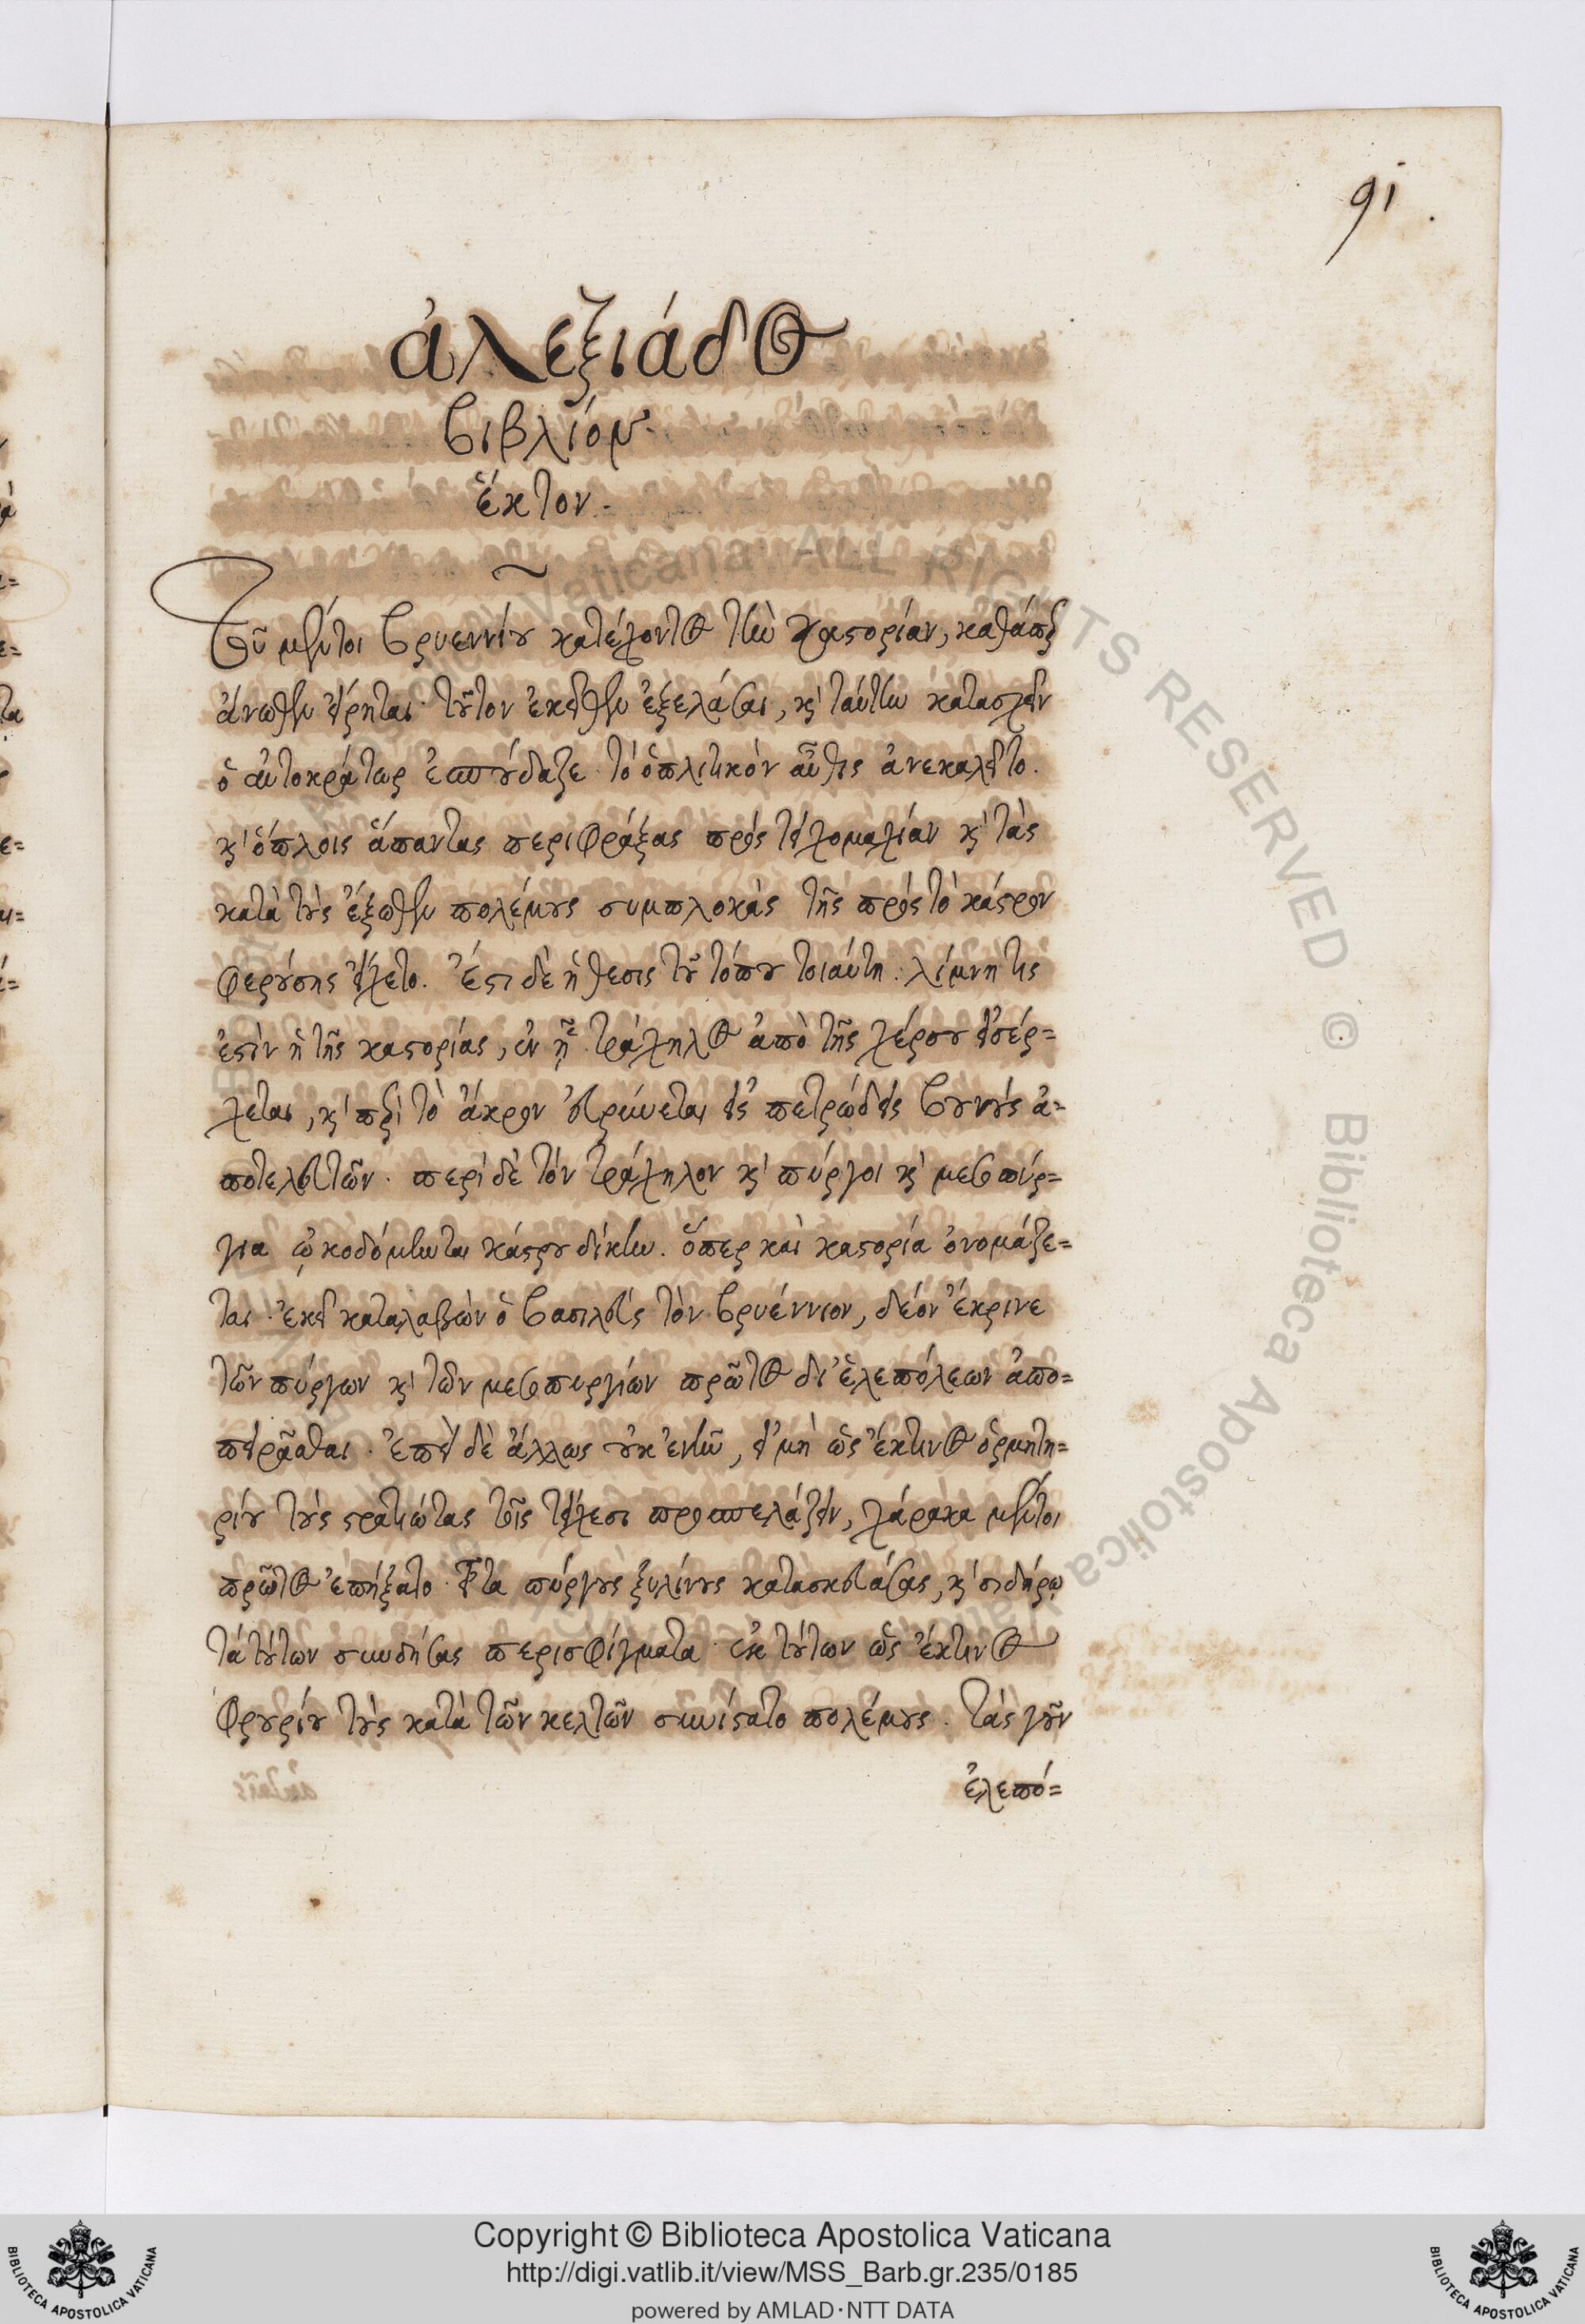 91.
ἀλεξιάδος
βιβλίον.
ἕκτον.
Τοῦ μέντοι βρυεννίου κατέχοντος τὴν καστορίαν, καθάπερ
ἄνωθεν εἴρηται· τοῦτον ἐκεῖθεν ἐξελάσαι, καὶ ταύτην κατασχεῖν
ὁ αὐτοκράτωρ ἐσπούδαζε· τὸ ὁπλιτικὸν αὖθις ἀνεκαλεῖτο.
καὶ ὅπλοις ἅπαντας περιφράξας πρὸς τειχομαχίαν καὶ τὰς
κατὰ τοὺς ἔξωθεν πολέμους συμπλοκὰς τῆς πρὸς τὸ κάστρον
φερούσης εἴχετο. Ἔστι δὲ ἡ θέσις τοῦ τόπου τοιαύτη. λίμνη τις
ἐστὶν ἡ τῆς καστορίας, ἐν ᾗ τράχηλος ἀπὸ τῆς χέρσου εἰσέρ=
χεται, καὶ περὶ τὸ ἄκρον εὐρύνεται εἰς πετρώδεις βουνοὺς ἀ=
ποτελευτῶν. περὶ δὲ τὸν τράχηλον καὶ πύργοι καὶ μεσοπύρ=
για ᾠκοδόμηνται κάστρου δίκην. ὅπερ καὶ καστορία ὀνομάζε=
ται. ἐκεῖ καταλαβὼν ὁ βασιλεὺς τὸν βρυέννιον, δέον ἔκρινε
τῶν πύργων καὶ τῶν μεσοπυργίων πρῶτος δι' ἑλεπόλεων ἀπο=
πειρᾶσθαι. ἐπεὶ δὲ ἄλλως οὐκ ἐνῆν, εἰ μὴ ὡς ἔκτινος ὁρμητη=
ρίου τοὺς στρατιώτας τοῖς τείχεσι προσπελάζειν, χάρακα μέντοι
πρῶτος ἐπήξατο. εἶτα πύργους ξυλίνους κατασκευάσας, καὶ σιδήρῳ
τὰ τούτων συνδήσας περισφίγματα. ἐκ τούτων ὡς ἔκτινος
φρουρίου τοὺς κατὰ τῶν κελτῶν συνίστατο πολέμους. τὰς γοῦν
ἑλεπό=
Copyright © Biblioteca Apostolica Vaticana
http://digi.vatlib.it/view/MSS_Barb.gr.235/0185
powered by AMLAD·NTT DATA